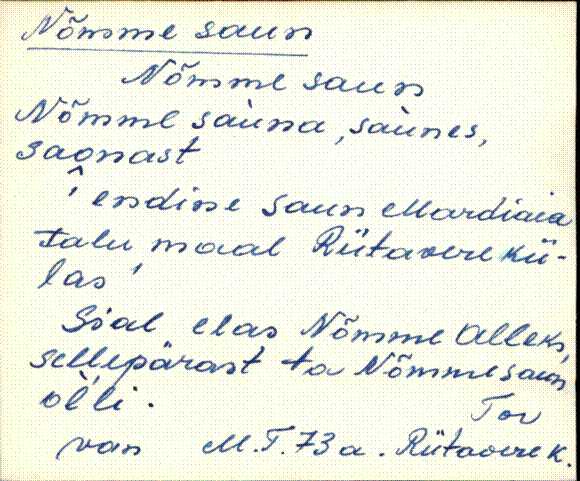 Nõmme saun
Nõmme saun
Nõmme sàuna, sàunes,
saonast
' endine saun Mardiaia
talu maal Rütavere kü-
las '
Sial elas Nõmme Alleks,
sellepärast ta Nõmme saun
òlli.
Tor
van M.T. 73 a. Rütavere k.